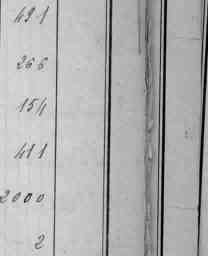 491
266
154
411
2000
2